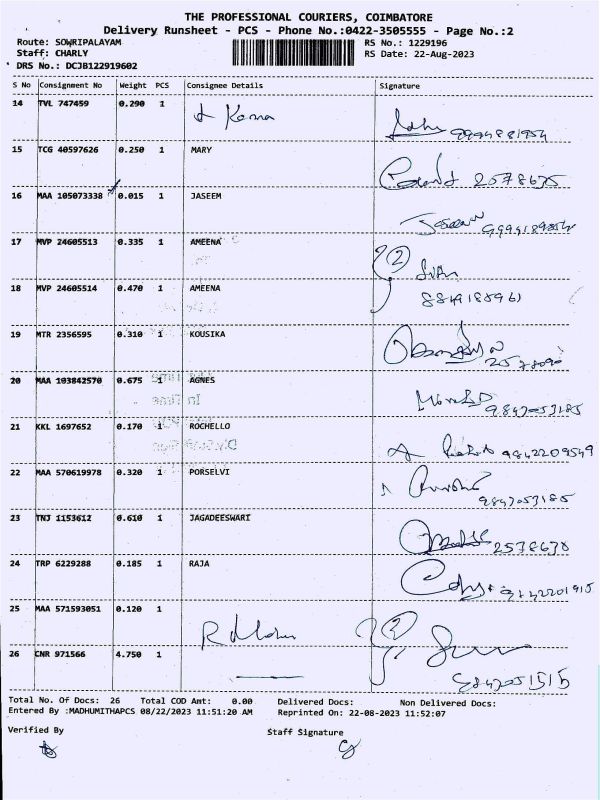 THE PROFESSIONAL COURIERS, COIMBATORE
Delivery Runsheet - PCS - Phone No.:0422-3505555 - Page No.:2
Route: SOWRIPALAYAM RS No.: 1229196
Staff: CHARLY RS Date: 22-Aug-2023
DRS No.: DCJB122919602
S No Consignment No Weight PCS Consignee Details Signature
14 TVL 747459 0.290 1
15 TCG 40597626 0.250 1 MARY
16 MAA 105073338 0.015 1 JASEEM
17 MVP 24605513 0.335 1 AMEENA
18 MVP 24605514 0.470 1 AMEENA
19 MTR 2356595 0.310 1 KOUSIKA
20 MAA 103842570 0.675 1 AGNES
9843053185
21 KKL 1697652 0.170 1 ROCHELLO
9842209549
22 MAA 570619978 0.320 1 PORSELVI
9843053185
23 TNJ 1153612 0.610 1 JAGADEESWARI
2578638
24 TRP 6229288 0.185 1 RAJA
25 MAA 571593051 0.120 1
26 CNR 971566 4.750 1
Total No. Of Docs: 26 Total COD Amt: 0.00 Delivered Docs: Non Delivered Docs:
Entered By :MADHUMITHAPCS 08/22/2023 11:51:20 AM Reprinted On: 22-08-2023 11:52:07
Verified By Staff Signature